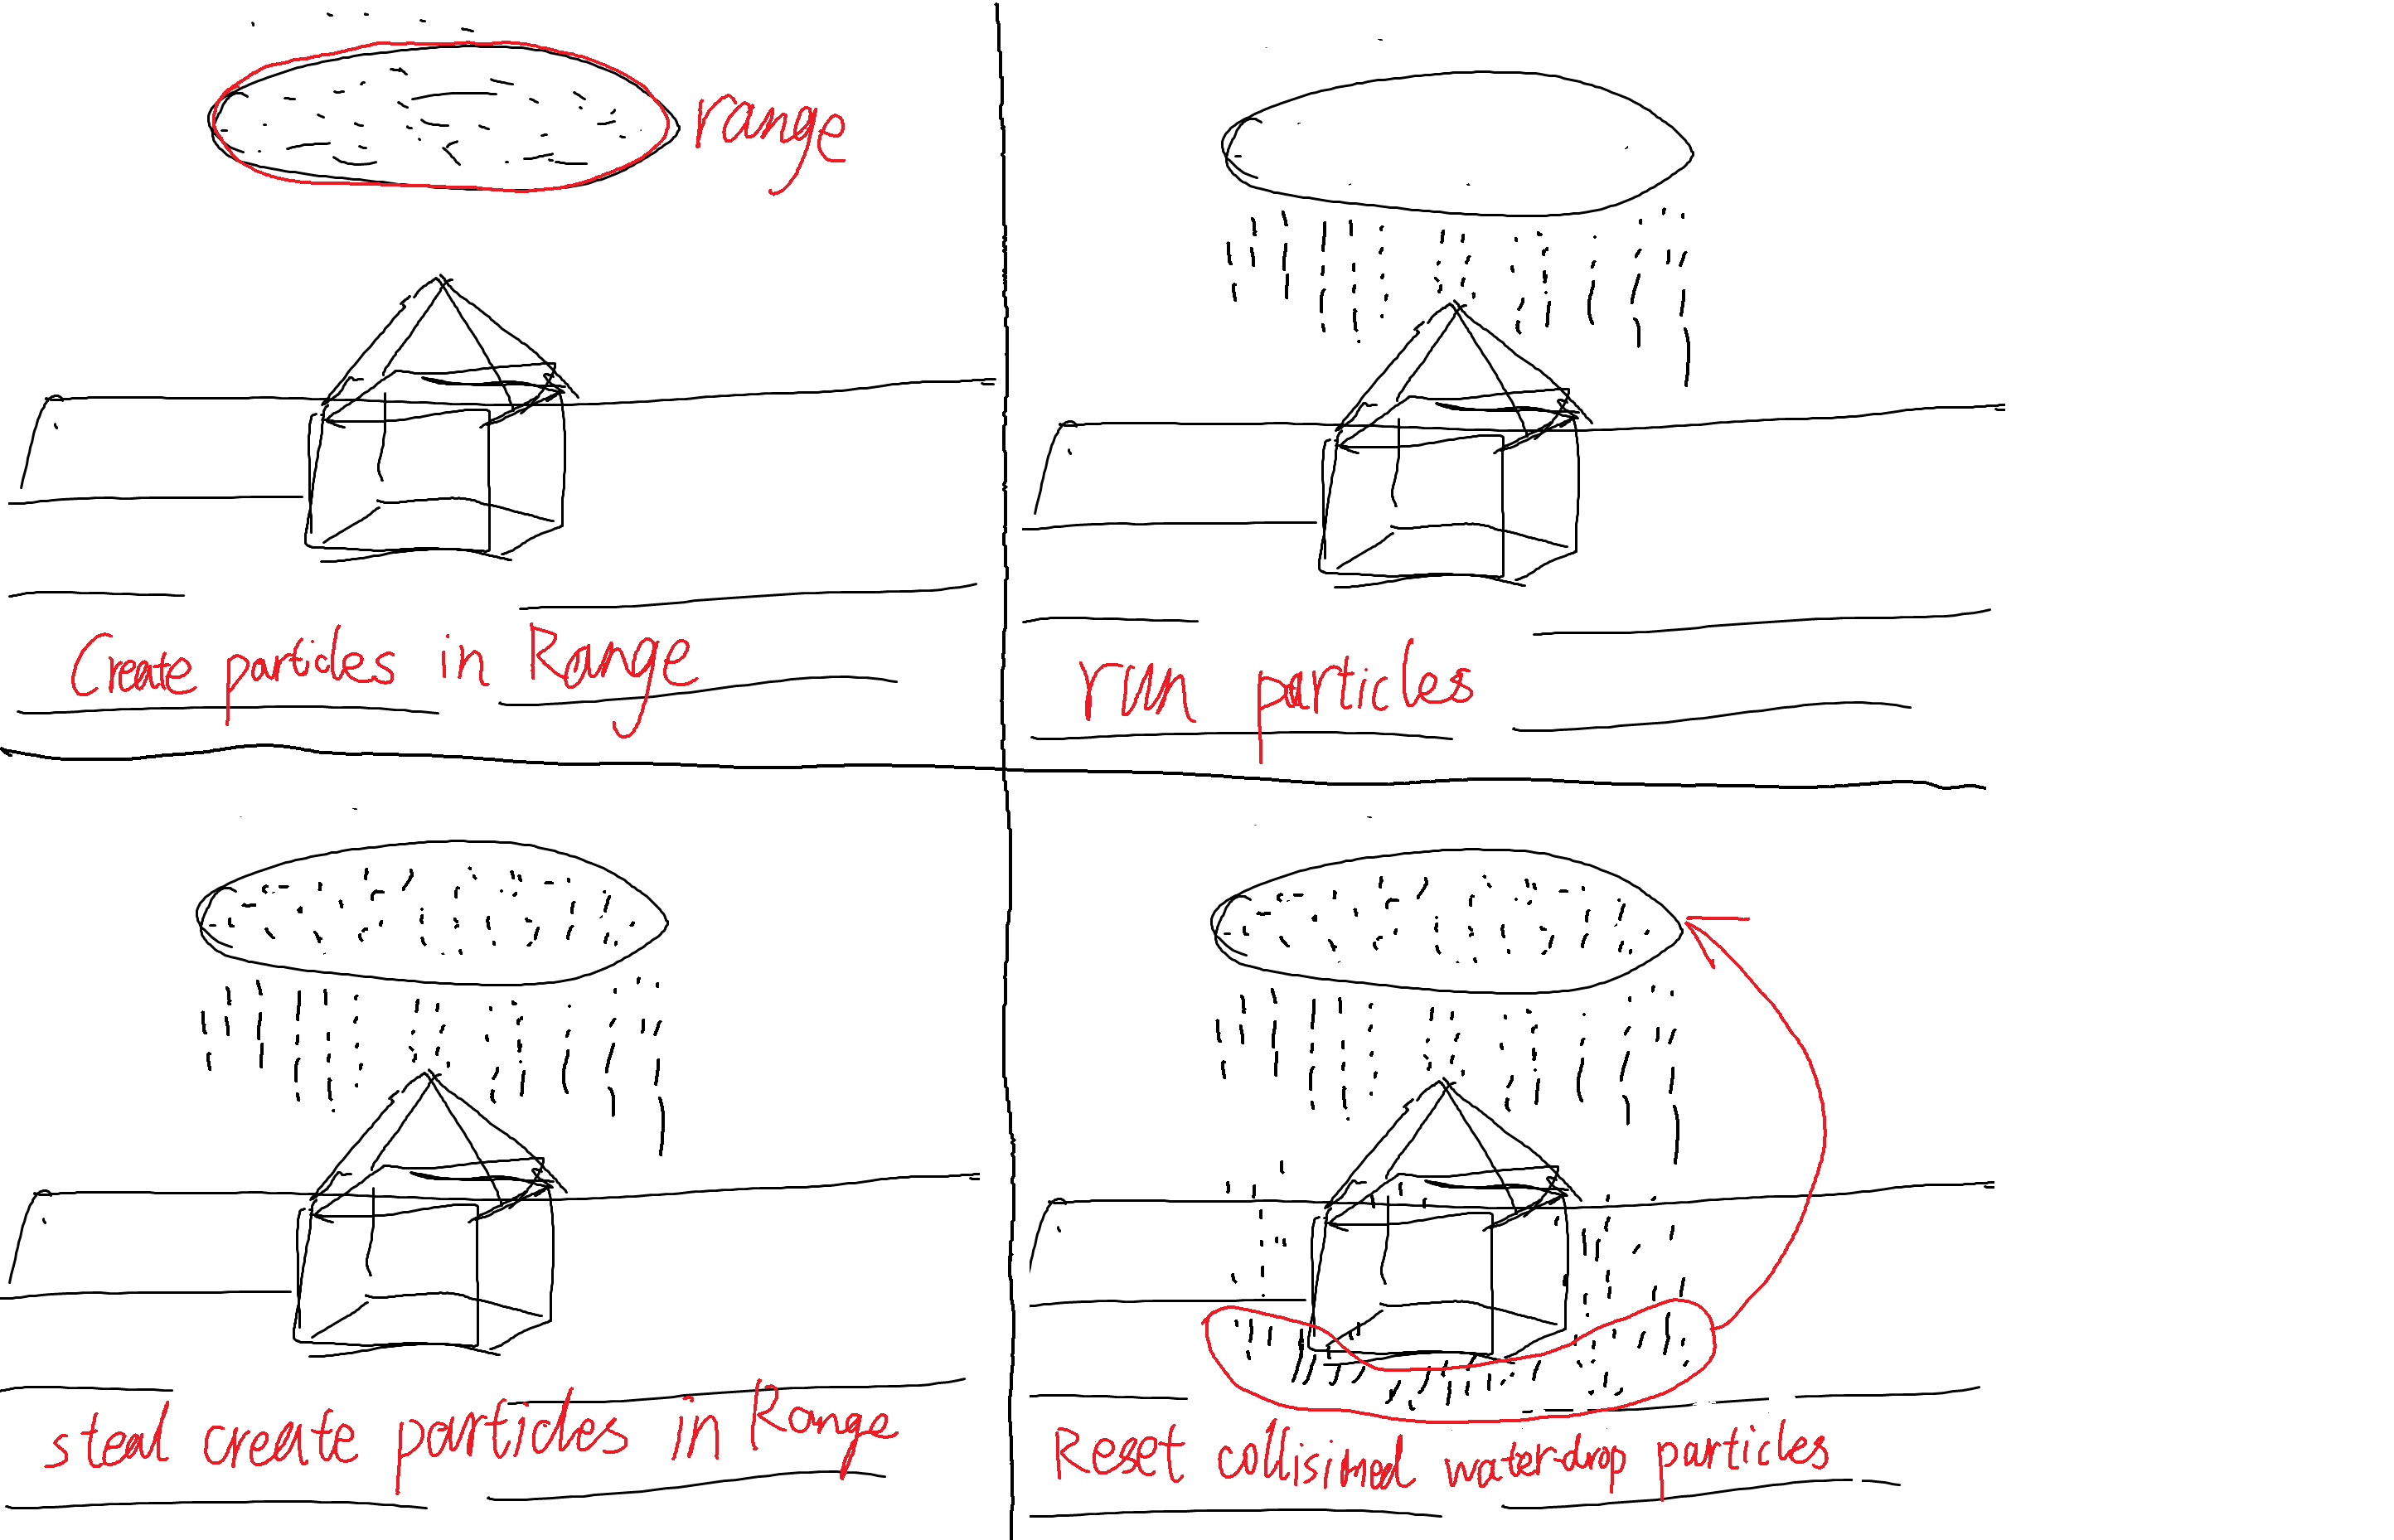 range
Create particles in Range
run particles
steal create particles in Range
Reset collisimed water-drop particles